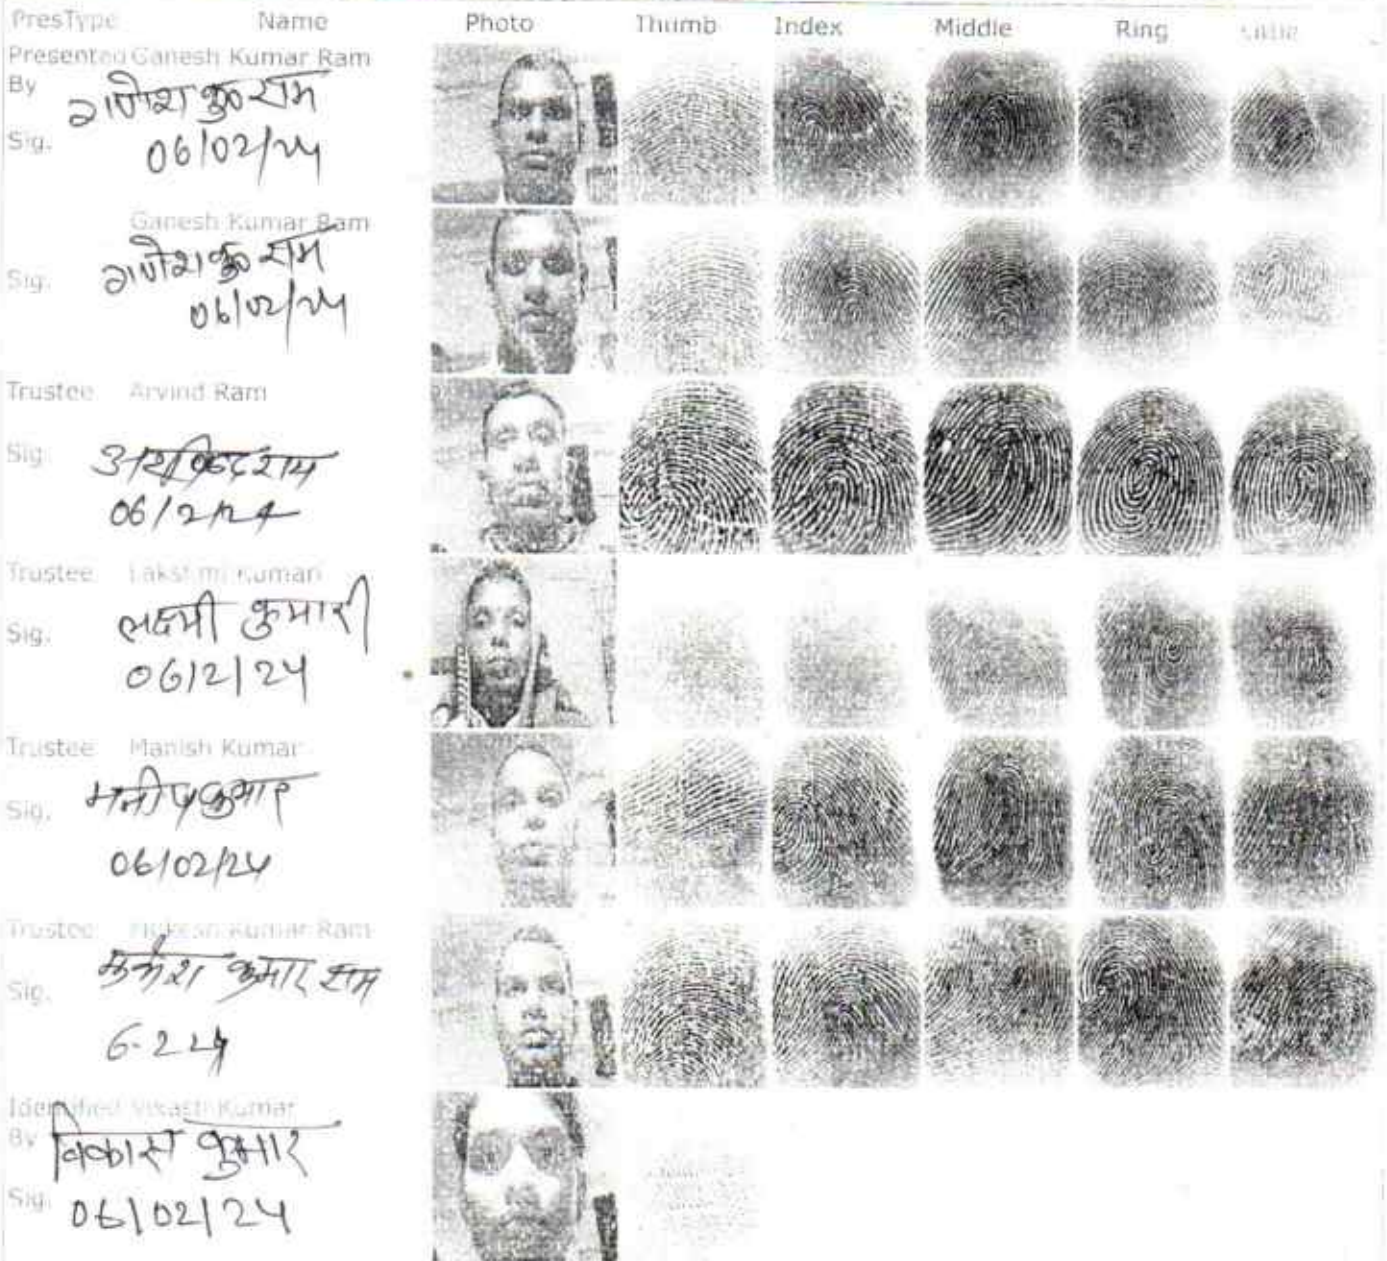 PresType Name Photo Thumb Index Middle Ring Little
Presented Ganesh Kumar Ram
By गणेश कु० राम
Sig. 06/02/24
Ganesh Kumar Ram
गणेश कु० राम
Sig. 06/02/24
Trustee Arvind Ram
Sig. अरविन्द राम
06/2/24
Trustee Lakshmi Kumari
Sig. लक्ष्मी कुमारी
06/2/24
Trustee Manish Kumar
Sig. मनीष कुमार
06/02/24
Trustee Mukesh Kumar Ram
Sig. मुकेश कुमार राम
6-2-24
Identified Vikash Kumar
By विकास कुमार
Sig. 06/02/24